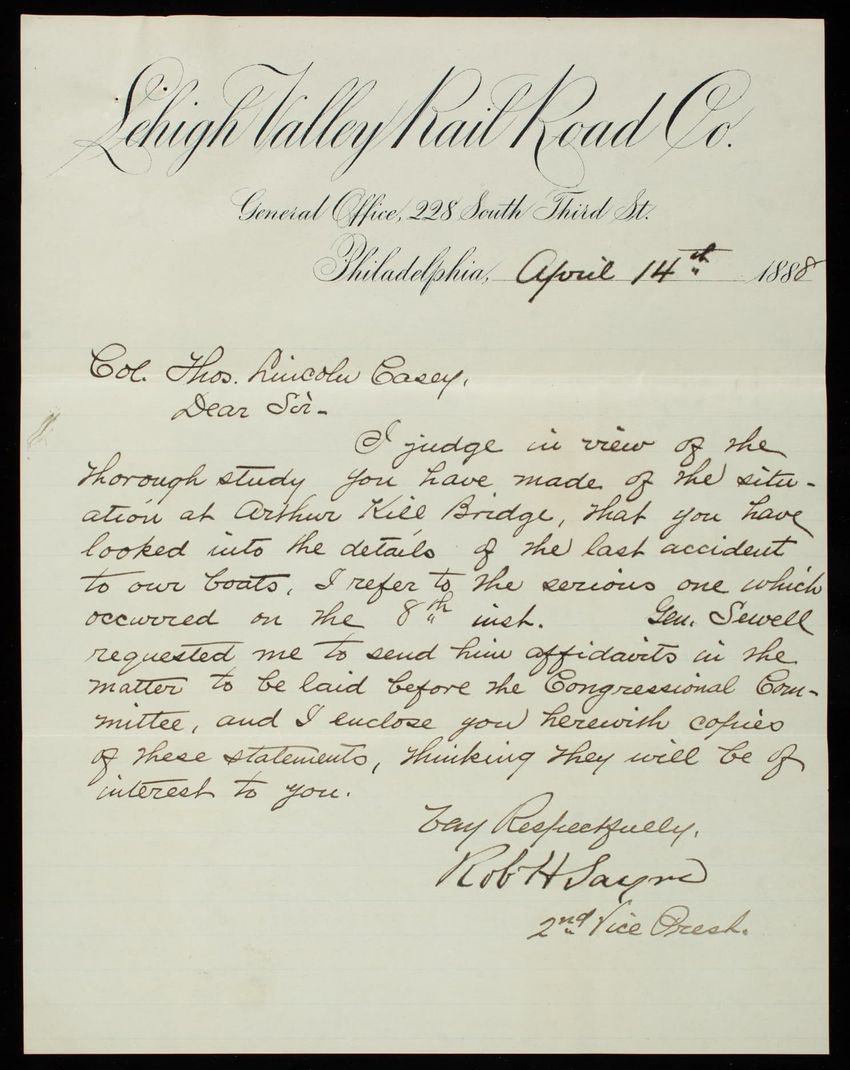 Lehigh Valley Rail Road Co.
General Office, 228 South Third St.
Philadelphia, April 14th 1888
Col. Thos. Lincoln Casey,
Dear Sir-
I judge in view of the
thorough study you have made of the situ-
ation at Arthur Kill Bridge, that you have
looked into the details of the last accident
to our boats, I refer to the serious one which
occurred on the 8th inst. Gen. Sewell
requested me to send him affidavits in the
matter to be laid before the Congressional Com-
mittee, and I enclose you herewith copies
of these statements, thinking they will be of
interest to you.
Very Respectfully,
Rob H Sayre
2nd Vice Prest.